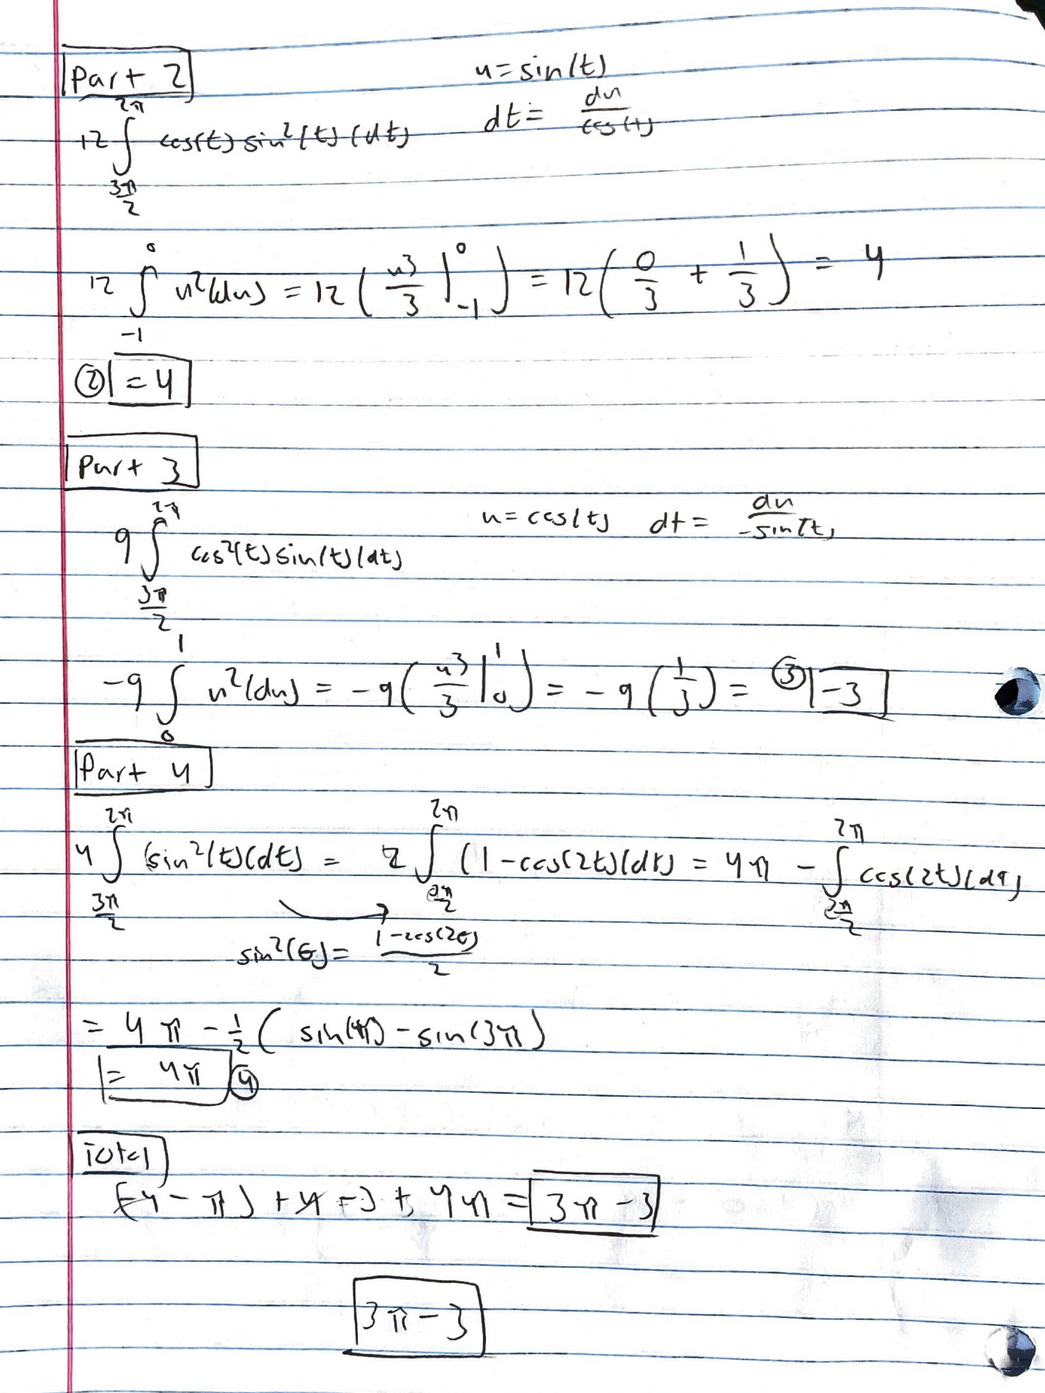 Part 2
u = sin(t)
dt = du/cos(t)
12 ∫_{3π/2}^{2π} cos(t) sin²(t) (dt)
12 ∫_{-1}^{0} u²(du) = 12 ( u³/3 |_{-1}^{0} ) = 12 ( 0/3 + 1/3 ) = 4
② = 4
Part 3
u = cos(t) dt = du/-sin(t)
9 ∫_{3π/2}^{2π} cos²(t) sin(t) (dt)
-9 ∫_{0}^{1} u²(du) = -9 ( u³/3 |_{0}^{1} ) = -9 ( 1/3 ) = ③ -3
Part 4
4 ∫_{3π/2}^{2π} (sin²(t)(dt) = 2 ∫_{3π/2}^{2π} (1-cos(2t)(dt) = 4π - ∫_{3π/2}^{2π} cos(2t)(dt)
sin²(θ) = 1-cos(2θ)/2
= 4π - 1/2 ( sin(4π) - sin(3π)
= 4π ④
Total
(-4 - π) + 4 - 3 + 4π = 3π - 3
3π - 3